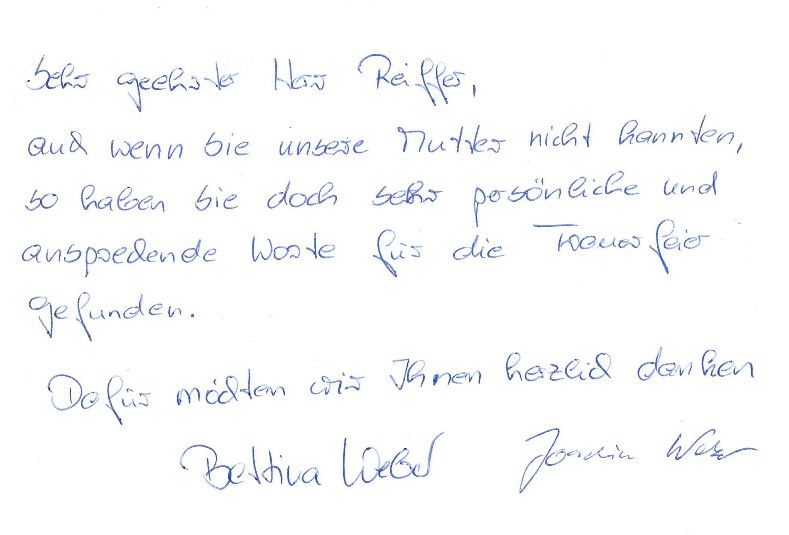 Sehr geehrter Herr Reiffer,
auch wenn Sie unsere Mutter nicht kannten,
so haben Sie doch sehr persönliche und
ansprechende Worte für die Trauerfeier
gefunden.
Dafür möchten wir Ihnen herzlich danken
Bettina Weber Joachim Weber